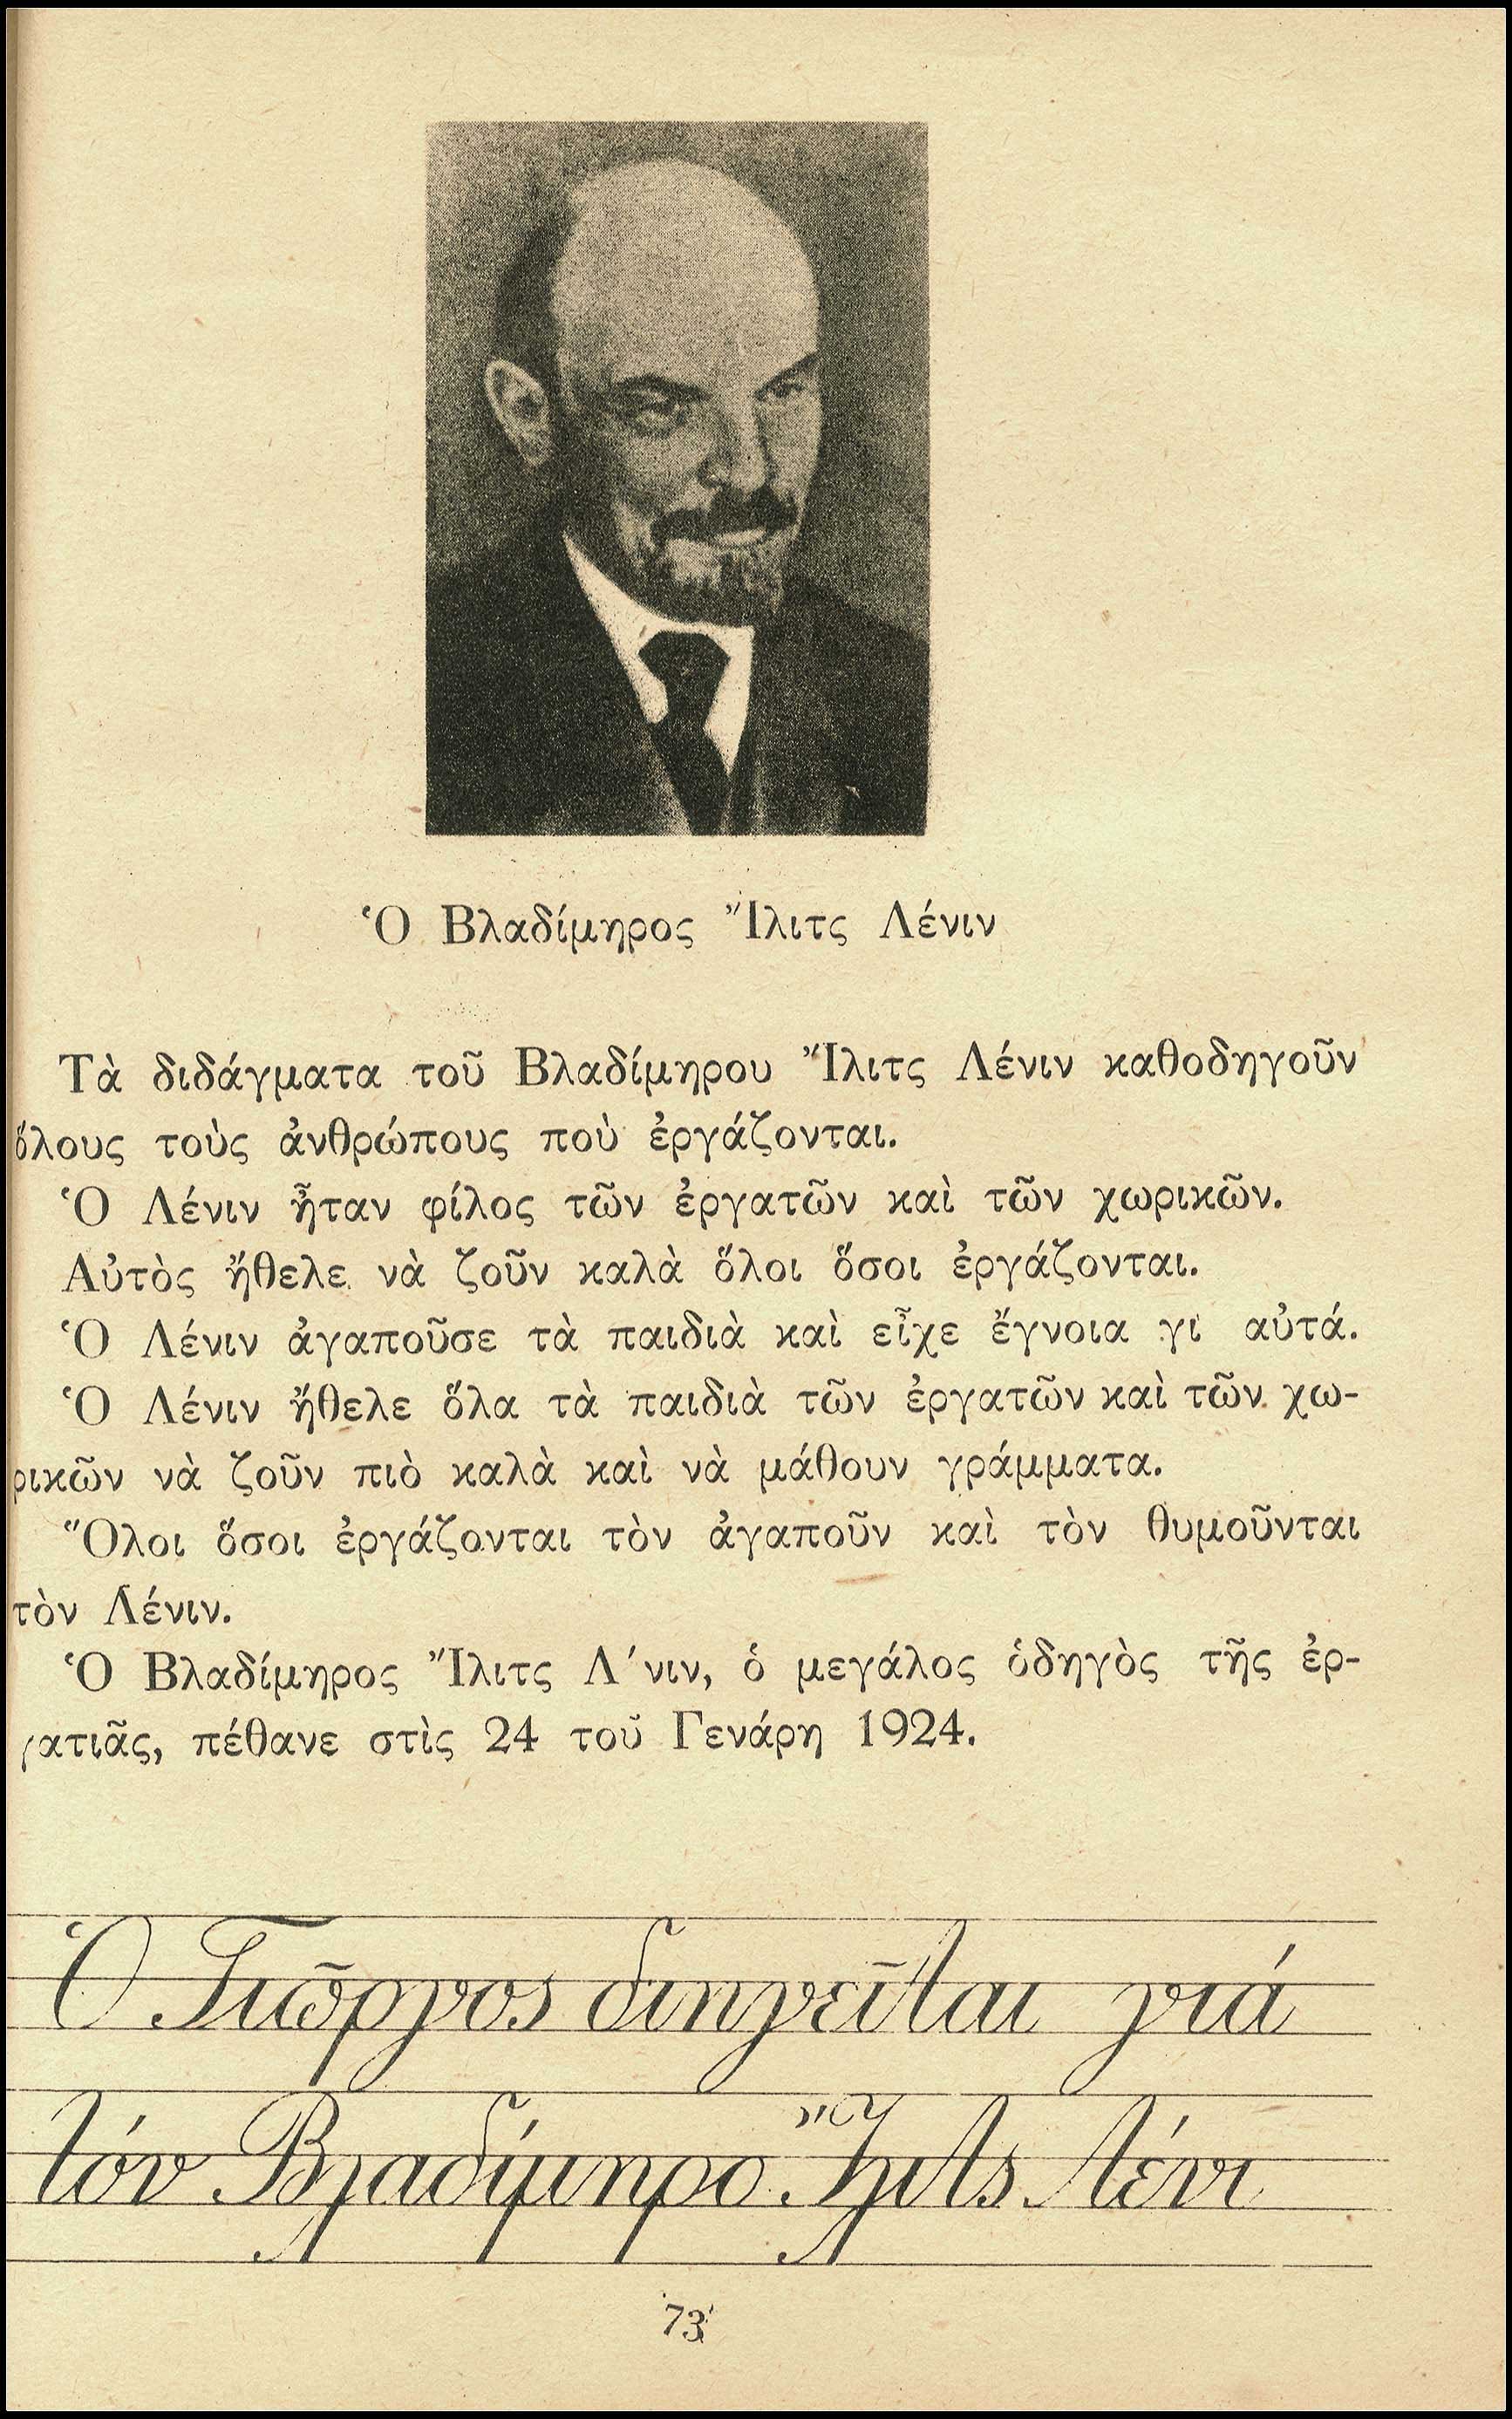 Ὁ Βλαδίμηρος Ἴλιτς Λένιν
Τὰ διδάγματα τοῦ Βλαδίμηρου Ἴλιτς Λένιν καθοδηγοῦν
ὅλους τοὺς ἀνθρώπους ποὺ ἐργάζονται.
Ὁ Λένιν ἦταν φίλος τῶν ἐργατῶν καὶ τῶν χωρικῶν.
Αὐτὸς ἤθελε νὰ ζοῦν καλὰ ὅλοι ὅσοι ἐργάζονται.
Ὁ Λένιν ἀγαποῦσε τὰ παιδιὰ καὶ εἶχε ἔγνοια γι αὐτά.
Ὁ Λένιν ἤθελε ὅλα τὰ παιδιὰ τῶν ἐργατῶν καὶ τῶν χω-
ρικῶν νὰ ζοῦν πιὸ καλὰ καὶ νὰ μάθουν γράμματα.
Ὅλοι ὅσοι ἐργάζονται τὸν ἀγαποῦν καὶ τὸν θυμοῦνται
τὸν Λένιν.
Ὁ Βλαδίμηρος Ἴλιτς Λ´νιν, ὁ μεγάλος ὁδηγὸς τῆς ἐρ-
γατιᾶς, πέθανε στὶς 24 τοῦ Γενάρη 1924.
Ὁ Γιῶργος διηγεῖται γιά
τόν Βλαδίμηρο Ἴλιτς Λένι
73